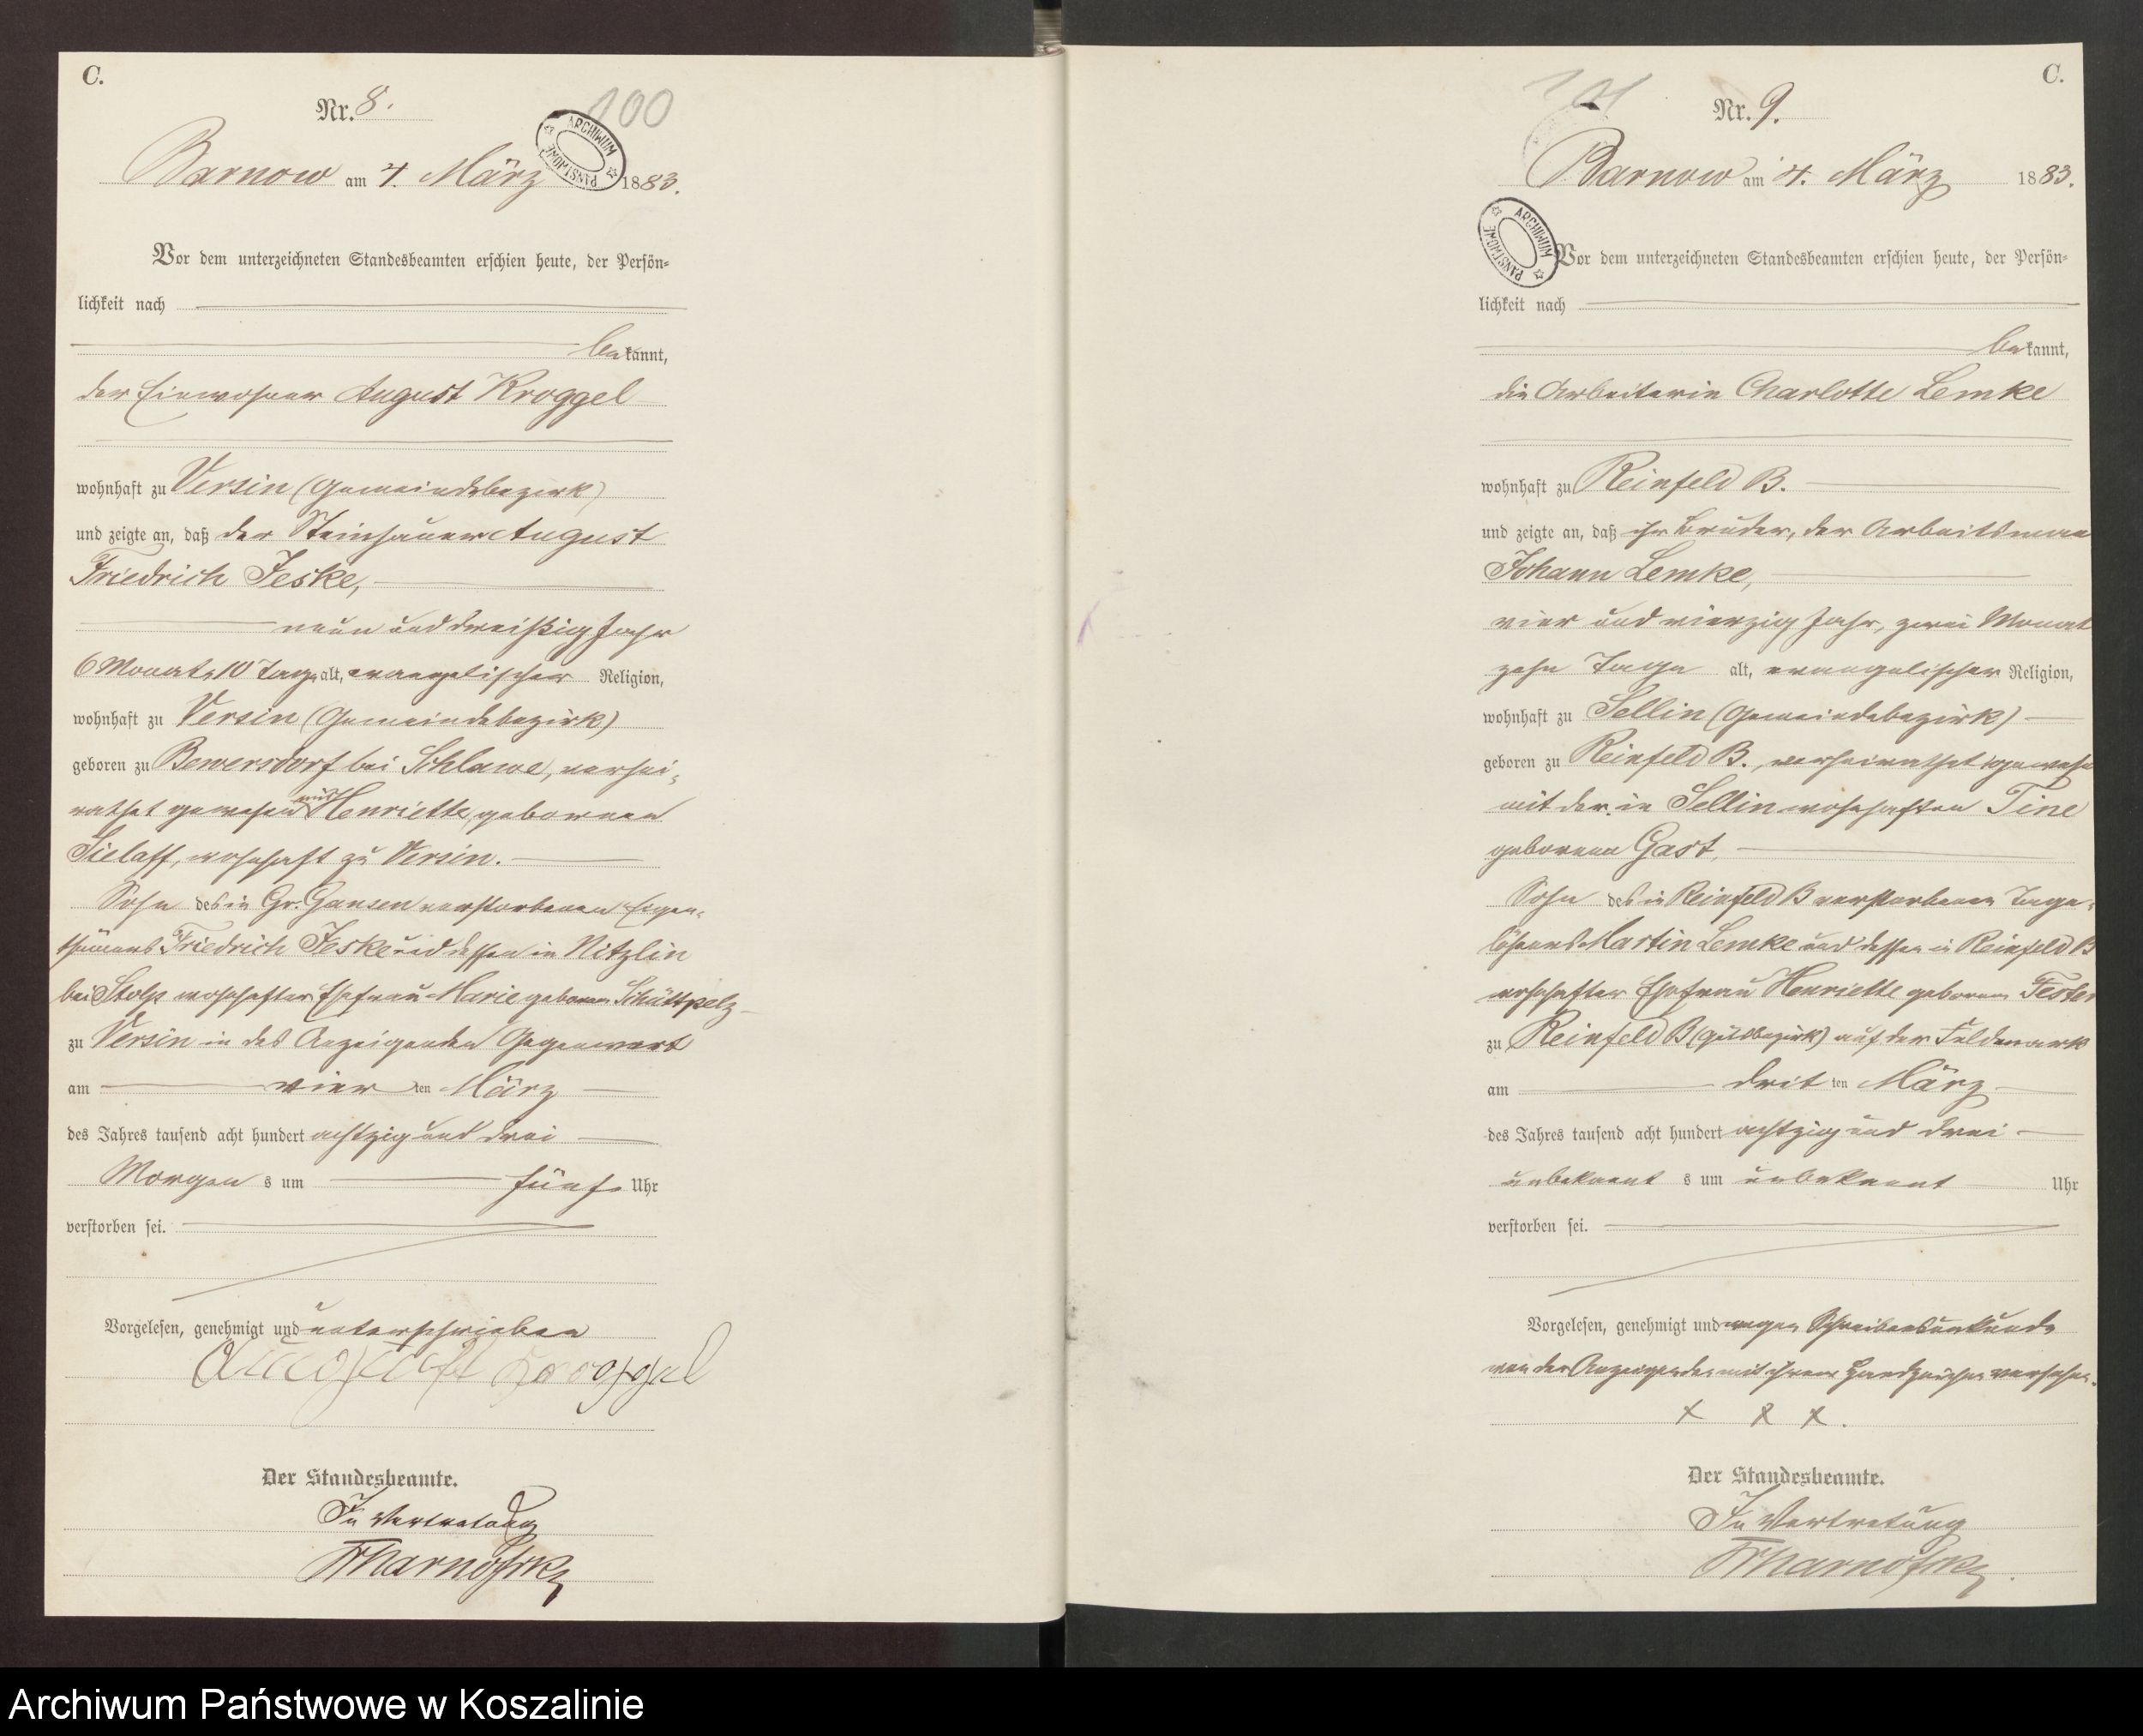 C.
Nr. 8.
100
ARCHIWUM PAŃSTWOWE
Barnow am 4. März 1883.
Vor dem unterzeichneten Standesbeamten erschien heute, der Persön-
lichkeit nach
bekannt,
der Einwohner August Kroggel
wohnhaft zu Versin (Gemeindebezirk)
und zeigte an, daß der Steinhauer August
Friedrich Jeske,
neun und dreißig Jahr
6 Monate 10 Tage alt, evangelischer Religion,
wohnhaft zu Versin (Gemeindebezirk)
geboren zu Bewersdorf bei Schlawe, verhei-
rathet gewesen mit Henriette, geborenen
Sielaff, wohnhaft zu Versin.
Sohn des in Gr. Gansen verstorbenen Eigen-
thümers Friedrich Jeske und dessen in Nitzlin
bei Stolp wohnhafter Ehefrau Marie geborenen Schüttpelz
zu Versin in des Anzeigenden Gegenwart
am vier ten März
des Jahres tausend acht hundert achtzig und drei
Morgen s um fünf Uhr
verstorben sei.
Vorgelesen, genehmigt und unterschrieben
August Kroggel
Der Standesbeamte.
In Vertretung
C.
Nr. 9.
101
ARCHIWUM PAŃSTWOWE
Barnow am 4. März 1883.
Vor dem unterzeichneten Standesbeamten erschien heute, der Persön-
lichkeit nach
bekannt,
die Arbeiterin Charlotte Lemke
wohnhaft zu Reinfeld B.
und zeigte an, daß ihr Bruder, der Arbeitsmann
Johann Lemke,
vier und vierzig Jahr, zwei Monat
zehn Tage alt, evangelischer Religion,
wohnhaft zu Sellin (Gemeindebezirk)
geboren zu Reinfeld B., verheirathet gewesen
mit der in Sellin wohnhaften Tine
geborenen Gast,
Sohn des in Reinfeld B verstorbenen Tage-
löhners Martin Lemke und dessen in Reinfeld B
wohnhafter Ehefrau Henriette geborenen
zu Reinfeld B (Gutsbezirk) auf der Feldmark
am drit ten März
des Jahres tausend acht hundert achtzig und drei
unbekannt s um unbekannt Uhr
verstorben sei.
Vorgelesen, genehmigt und wegen Schreibensunkunde
von der Anzeigenden mit ihrem Handzeichen versehen.
x x x.
Der Standesbeamte.
In Vertretung
Archiwum Państwowe w Koszalinie